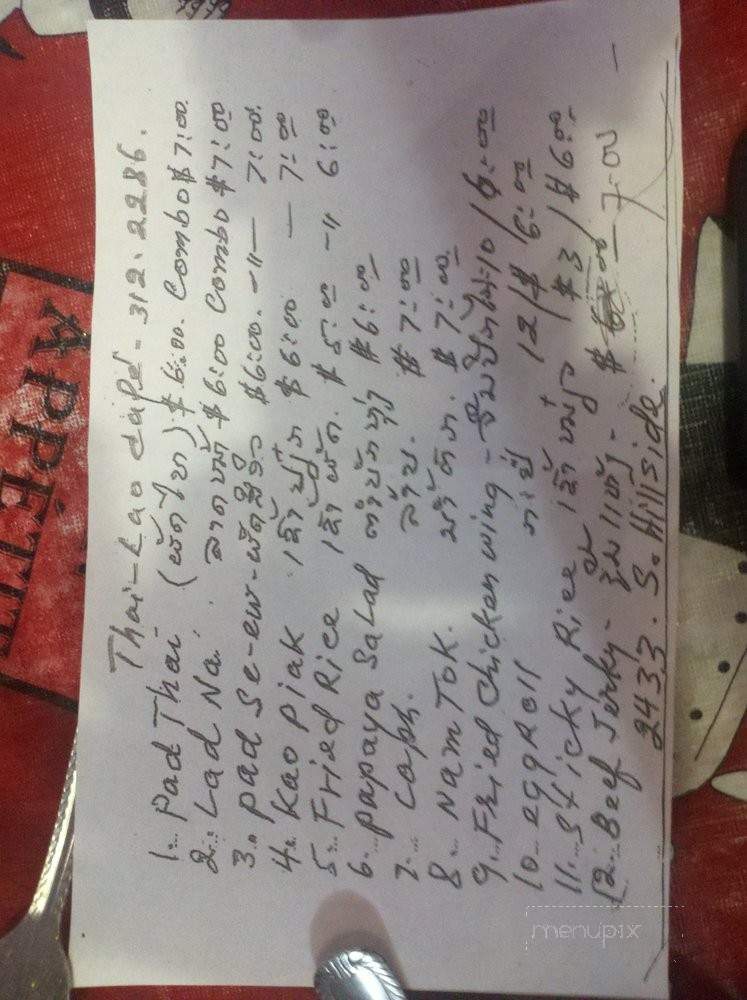 Thai-Lao Café - 312.2286.
1... Pad Thai (ຜັດໄທ) $6:00. Combo $7:00.
2... Lad Na. ລາດໜ້າ $6:00 Combo $7:00
3... Pad Se-ew-ຜັດສີອິ້ວ $6:00. -"- 7:00.
4... Kao Piak ເຂົ້າປຽກ $6:00 — 7:00
5... Fried Rice ເຂົ້າຜັດ. $5:00 -" 6:00
6... Papaya Salad ຕຳໝາກຫຸ່ງ $6:00
7... ລາບ. $7:00
8... Nam Tok. ນ້ຳຕົກ. $7:00.
9... Fried Chicken wing - 10/6:00
10... eggRoll 12/$6:00
11... Sticky Rice ເຂົ້າໜຽວ $3/$6:00-
12... Beef Jerky- - $ 7:00 -
2433. S. Hillside.
APPÉTIT
menupix